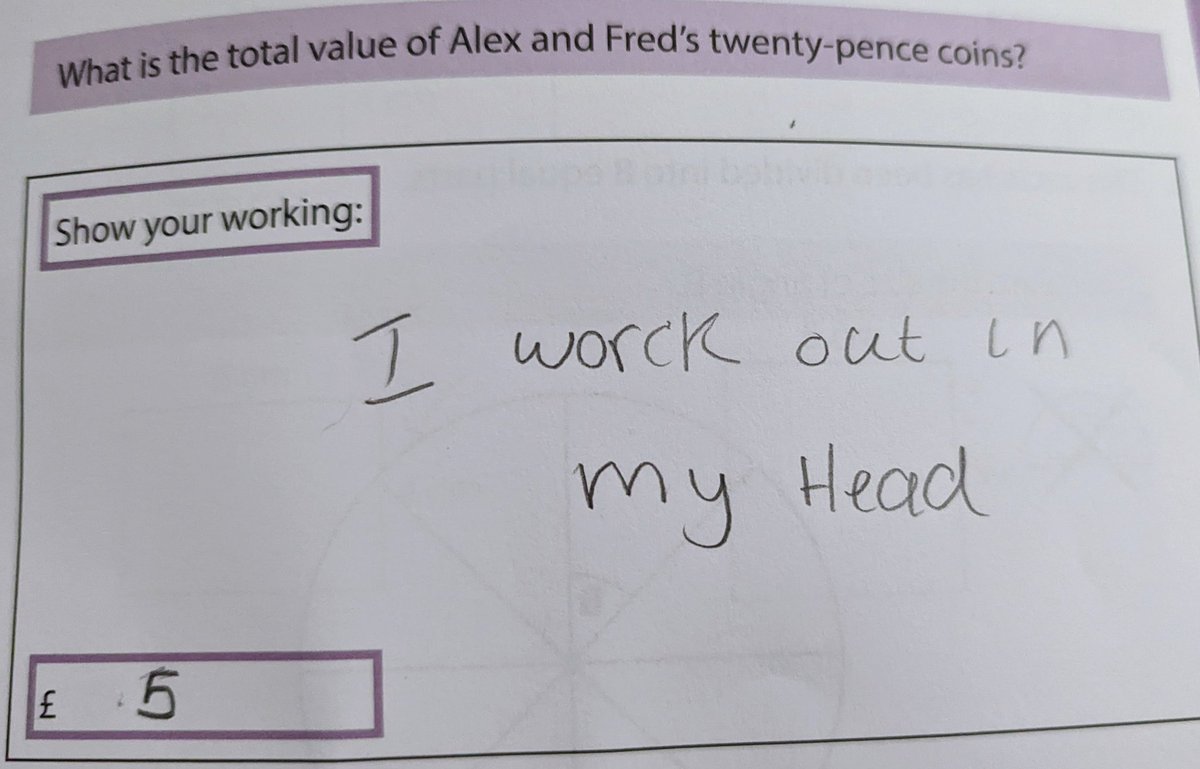 What is the total value of Alex and Fred's twenty-pence coins?
Show your working:
I worck out in
my Head
£ 5